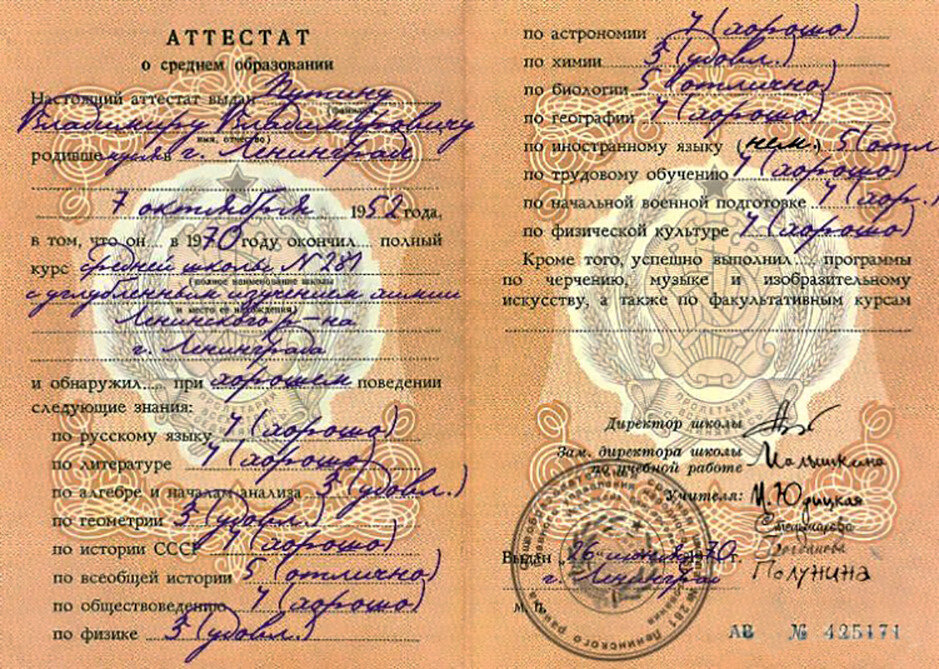 АТТЕСТАТ
о среднем образовании
Настоящий аттестат выдан Путину
(фамилия,
Владимиру Владимировичу
имя, отчество)
родившемуся в г. Ленинграде
7 октября 1952 года,
в том, что он.... в 1970 году окончил.... полный
курс средней школы № 281
(полное наименование школы
с углубленным изучением химии
и место ее нахождения)
Ленинского р-на
г. Ленинграда
и обнаружил.... при хорошем поведении
следующие знания:
по русскому языку 4 (хорошо)
по литературе 4 (хорошо)
по алгебре и началам анализа 3 (удовл.)
по геометрии 3 (удовл.)
по истории СССР 4 (хорошо)
по всеобщей истории 5 (отлично)
по обществоведению 4 (хорошо)
по физике 3 (удовл.)
по астрономии 4 (хорошо)
по химии 3 (удовл.)
по биологии 5 (отлично)
по географии 4 (хорошо)
по иностранному языку (нем.) 5 (отл
по трудовому обучению 4 (хорошо)
по начальной военной подготовке 4 (хор.)
по физической культуре 4 (хорошо)
Кроме того, успешно выполнил...., программы
по черчению, музыке и изобразительному
искусству, а также по факультативным курсам
Директор школы
Зам. директора школы
по учебной работе Малышкина
Учителя: М. Юрицкая
Богданова
Полунина
Выдан „26 июня 1970 г.
г. Ленинград
М. П.
№ 281 Ленинского района
АВ № 425171